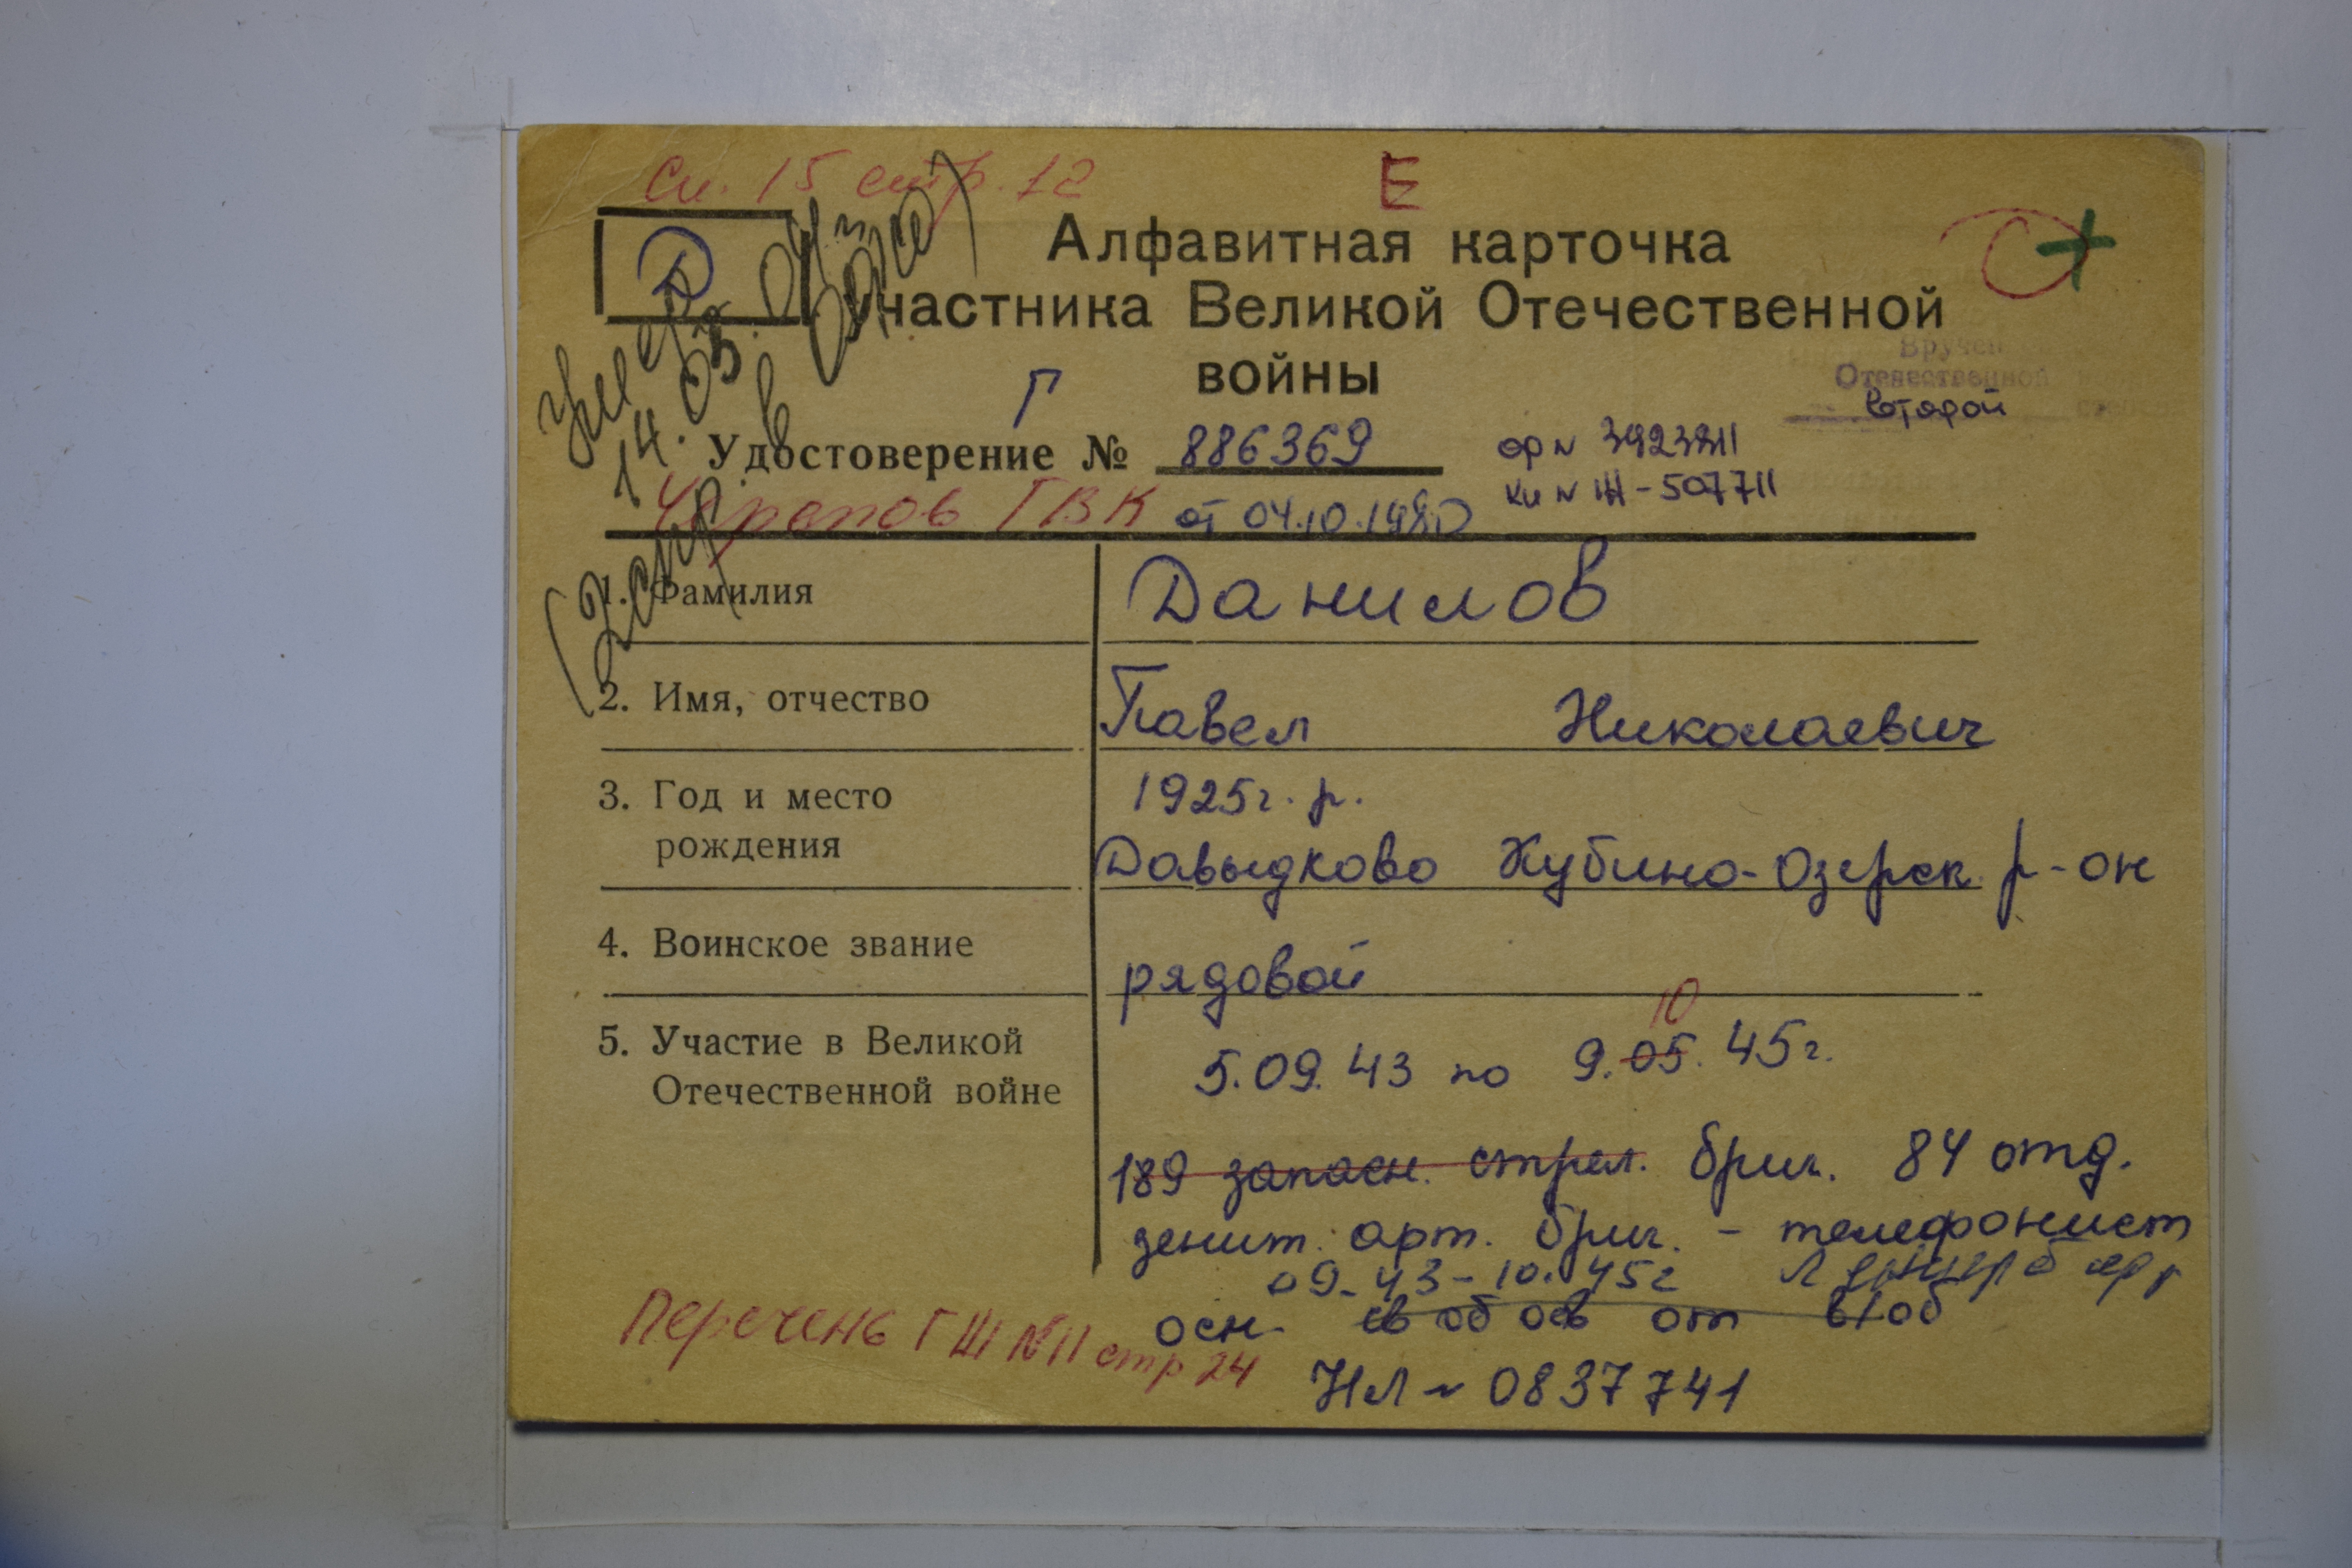 См. 15 стр. 12
Е
Д
Алфавитная карточка
участника Великой Отечественной
войны
Г
умер
14.03.04г
(запр. в
Вручен
Отечественной
второй
Удостоверение № 886369
ор № 3923811
Черепов ГВК от 04.10.1980
1. Фамилия Данилов
2. Имя, отчество Павел Николаевич
3. Год и место
рождения
1925г. р.
Давыдково Кубино-Озерск. р-он
4. Воинское звание рядовой
5. Участие в Великой
Отечественной войне
10
5.09.43 по 9.05.45г.
189 запасн. стрел. бриг. 84 отд.
зенит. арт. бриг. - телефонист
09.43-10.45г
осн. св об осв от в/об
Перечень ГШ №11 стр 24
НЛ № 0837741